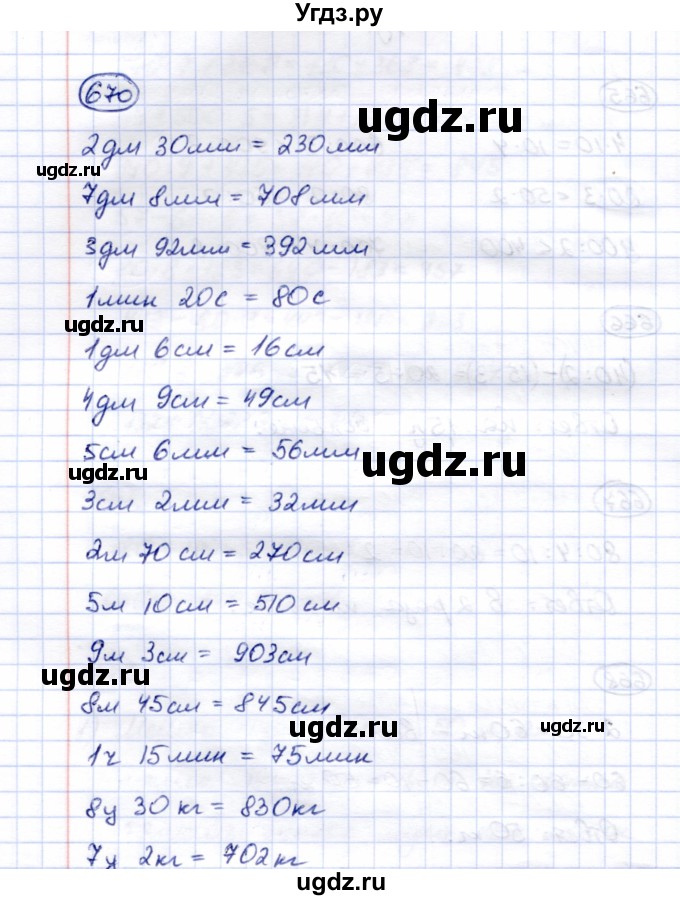 Угдз.ру
670
2дм 30мм = 230мм
7дм 8мм = 708мм
3дм 92мм = 392мм
1мин 20с = 80с
1дм 6см = 16см
4дм 9см = 49см
5см 6мм = 56мм
3см 2мм = 32мм
2м 70см = 270см
5м 10см = 510см
9м 3см = 903см
8м 45см = 845см
1ч 15мин = 75мин
8ц 30кг = 830кг
7ц 2кг = 702кг
ugdz.ru
ugdz.ru
ugdz.ru
ugdz.ru
ugdz.ru
ugdz.ru
ugdz.ru
ugdz.ru
ugdz.ru